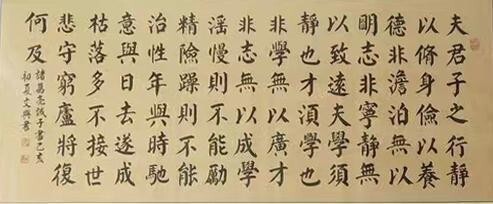 夫君子之行靜
以脩身儉以養
德非澹泊無以
明志非寧靜無
以致遠夫學須
靜也才須學也
非學無以廣才
非志無以成學
滛慢則不能勵
精險躁則不能
治性年與時馳
意與日去遂成
枯落多不接世
悲守窮廬將復
何及
諸葛亮誡子書己亥
初夏文興書